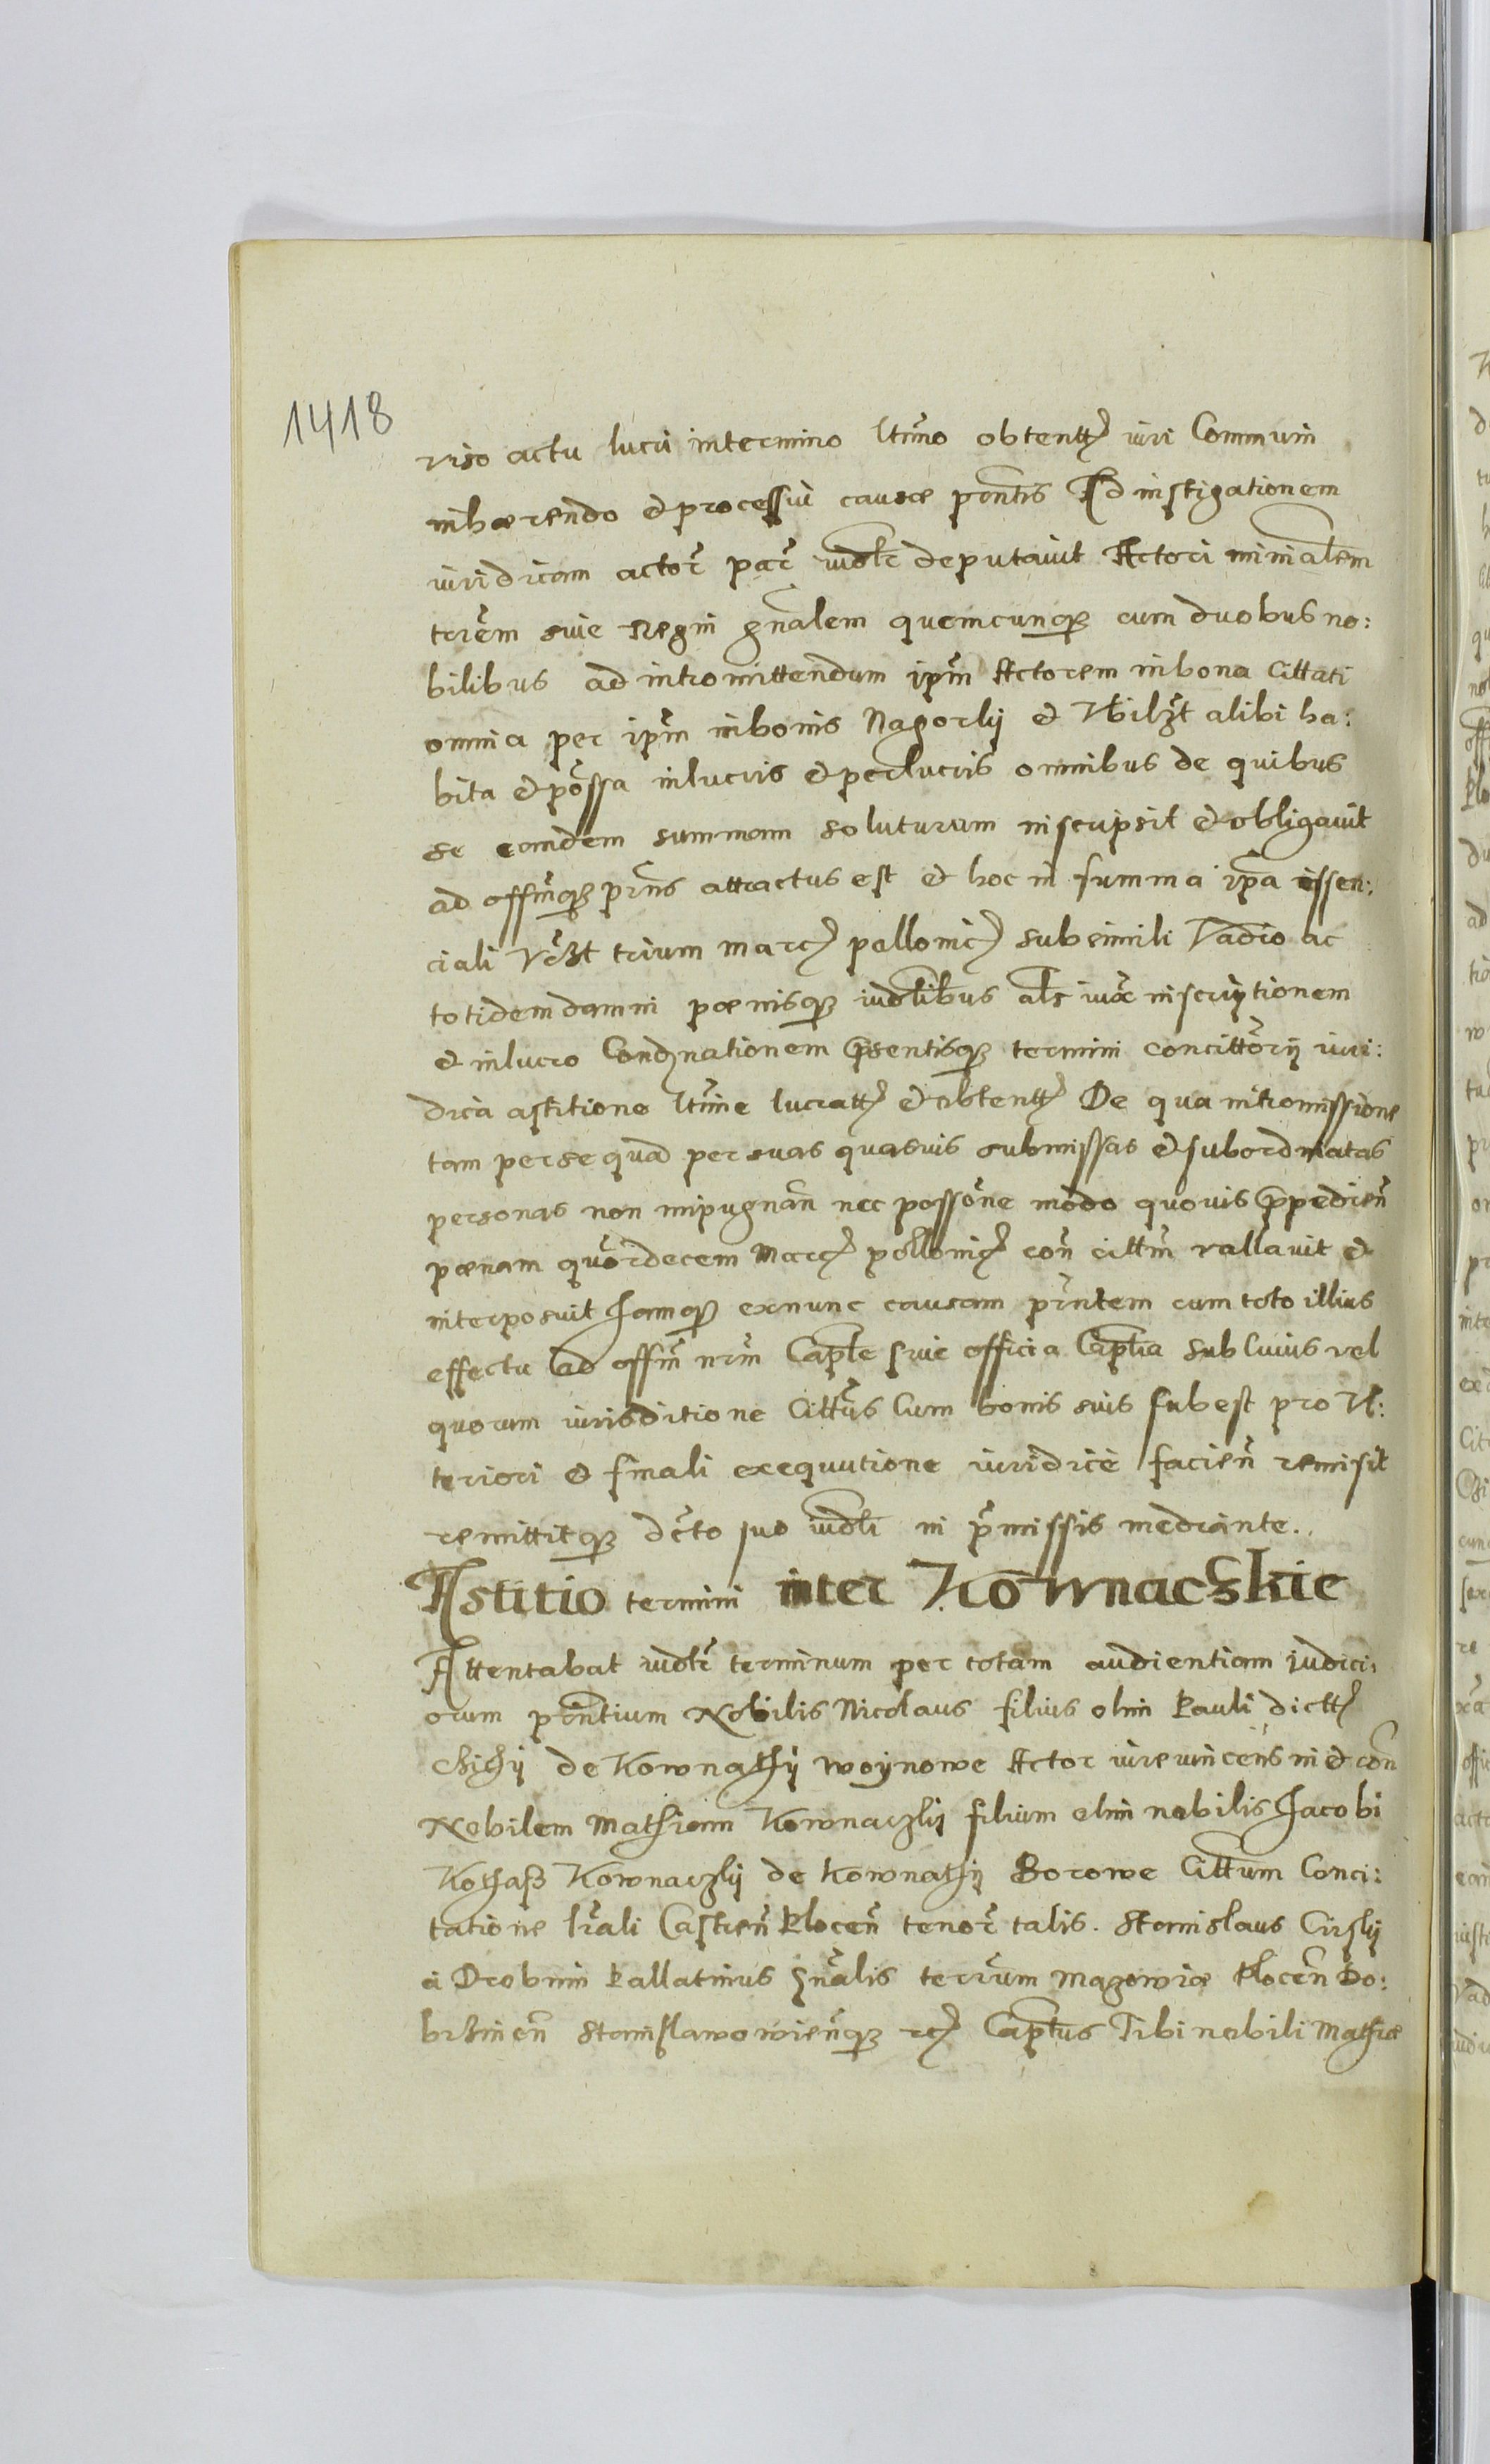 1418
viso actu lucri intermino ltimo obtentt iuri Communi
inhærendo et processui causæ pretis Ad instigationem
iuridicam actor par iudlr deputavit Actori minialem
trrem sive Regni gnalem quemcunque cum duobus no:
bilibus ad intromittendum ipm Actorem inbona Cittati
omnia per ipm inbonis Nagorki et ubilzt alibi ha:
bita et possa inlucris et perlucris omnibus de quibus
se eamdem summam soluturum inscripsit et obligavit
ad offmque prns attractus est et hoc in summa ipa essen:
ciali trium marc pollonic subsimili Vadio ac
totidem damni pænisque iudlibus als iux inscriptionem
et inlucro Condnationem Psentisque termini concittorij iuri:
dica astitione ltime lucratt et obtentt De qua intromissione
tam perse quad per suas quasvis submissas et subordinatas
personas non impugnan nec possone modo quovis Ppedien
pænam quordecem Marc pollonic con cittm vallavit et
interposuit Jamque exnunc causam prntem cum toto illius
effectu ad offm nrm Caple sive officia Caplia sub Cuius vel
quorum iurisditione Cittus Cum bonis suis subest pro Vl:
teriori et finali exequutione iuridicè facien remisit
remittitque dcto suo iudli in pmissis mediante.
Astitio termini inter Kownaczkie
Attentabat iudlr terminum per totam audientiam iudici:
orum prntium Nobilis Nicolaus filius olim Pauli dictt
de Kownathij woynowe Actor iure vincens in et con
Nobilem Mathiam Kownaczkij filium olim nobilis Jacobi
Kothasz Kownaczkij de Kownathij Borowe Cittum Conci:
tatione lrali Castren Plocen tenor talis. Stanislaus
à Drobnin Pallatinus gnalis terrum Mazowiæ Plocen Do:
brzinen Stanislawowienque rc Captus Tibi nobili Mathiæ